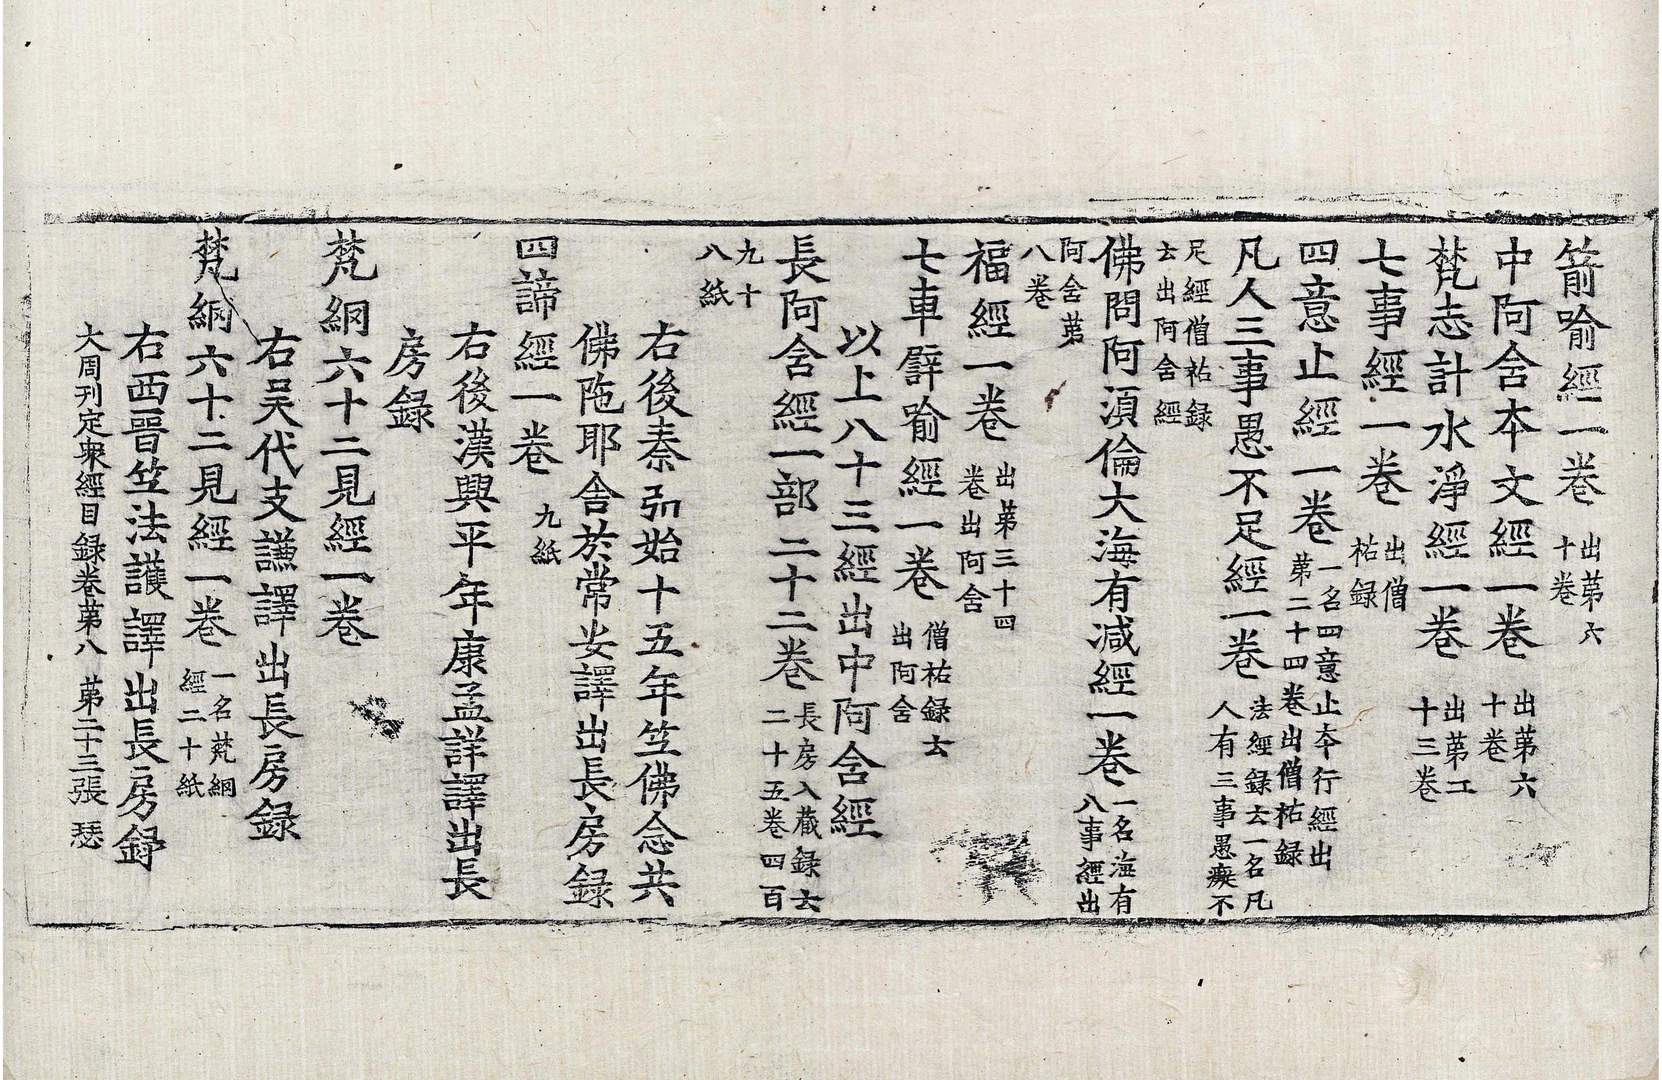 箭喻經一卷 出第六十卷
中阿含本文經一卷 出第六十卷
梵志計水淨經一卷 出第二十三卷
七事經一卷 出僧祐録
四意止經一卷 一名四意止本行經出第二十四卷出僧祐録
凡人三事愚不足經一卷 法經録云一名凡人有三事愚癡不
足經僧祐録云出阿含經
佛問阿湏倫大海有減經一卷 一名海有八事經出
阿含第八卷
福經一卷 出第三十四卷出阿含
七車譬喻經一卷 僧祐録云出阿含
以上八十三經出中阿含經
長阿含經一部二十二卷 長房入藏録云二十五卷四百
九十八紙
右後秦弘始十五年竺佛念共
佛陁耶舍於常安譯出長房録
四諦經一卷 九紙
右後漢興平年康孟詳譯出長
房録
梵網六十二見經一卷
右吴代支謙譯出長房録
梵網六十二見經一卷 一名梵網經二十紙
右西晉竺法護譯出長房録
大周刊定衆經目録卷第八 第二十三張 瑟